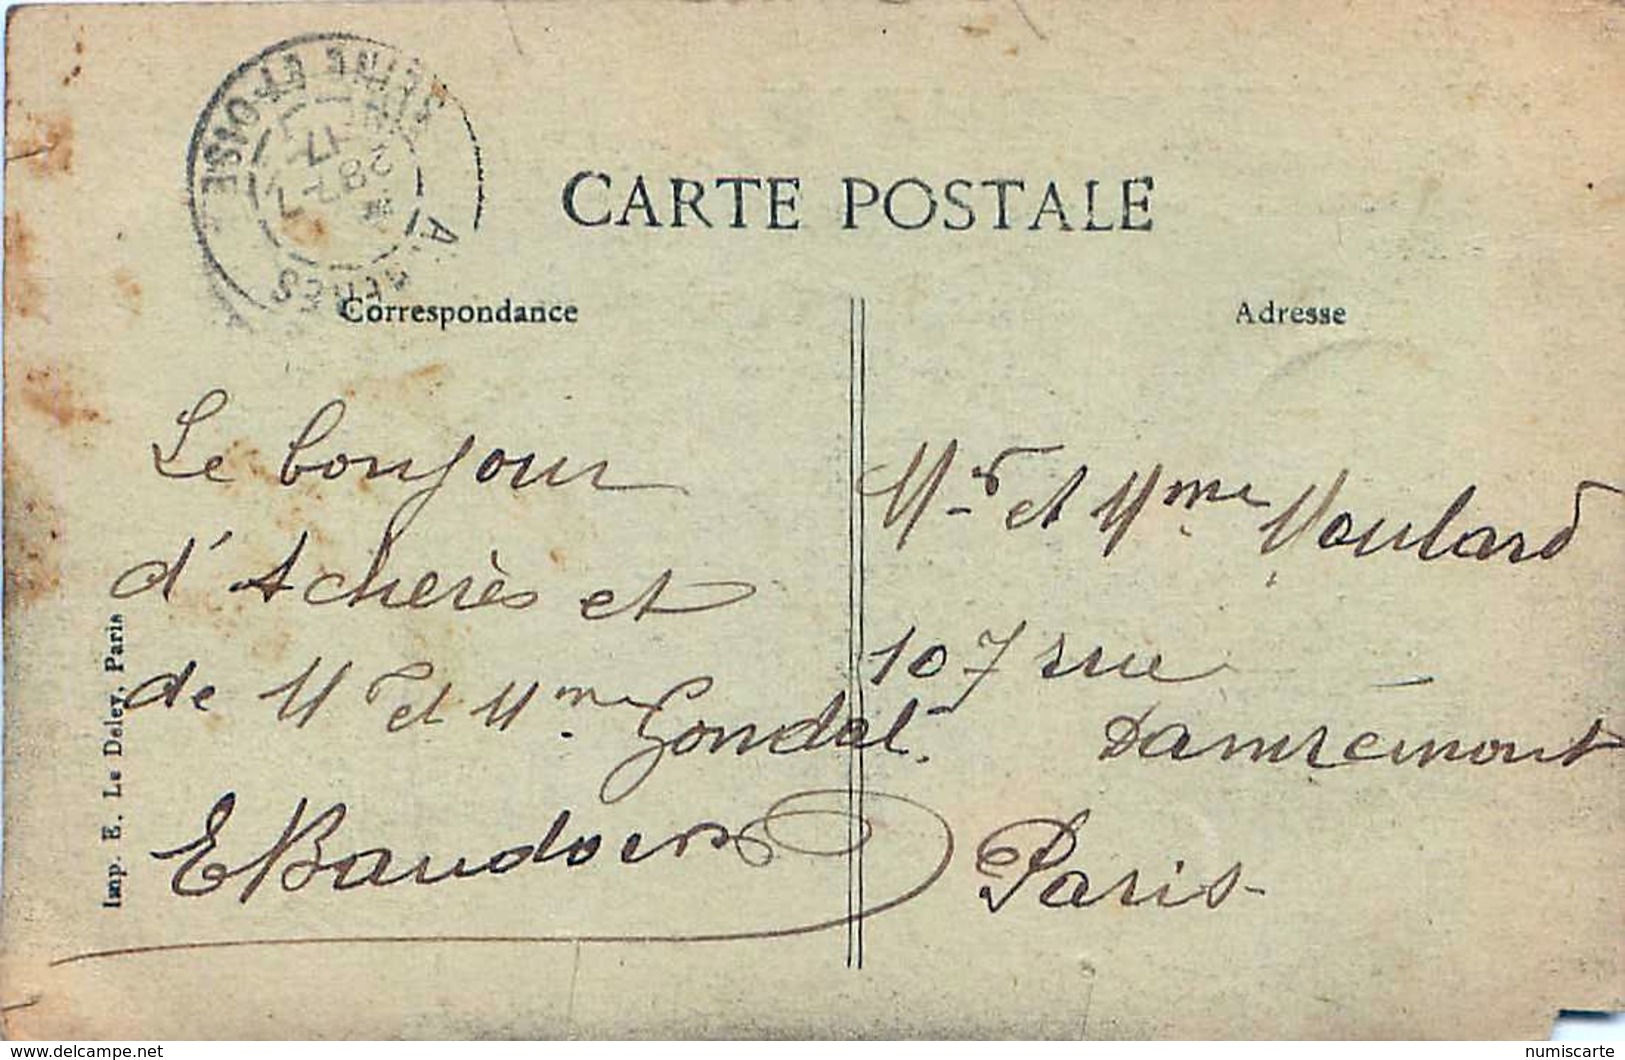 CARTE POSTALE
SEINE ET OISE
ACHERES
28-7
17
Correspondance
Adresse
Le bonjour
d'Acherès et
de Mr et Mme Gondal.
E Baudoin
Mr et Mme Moulard
107 rue
Damrémont
Paris
Imp. E. Le Deley, Paris
https://www.delcampe.net
numiscarte